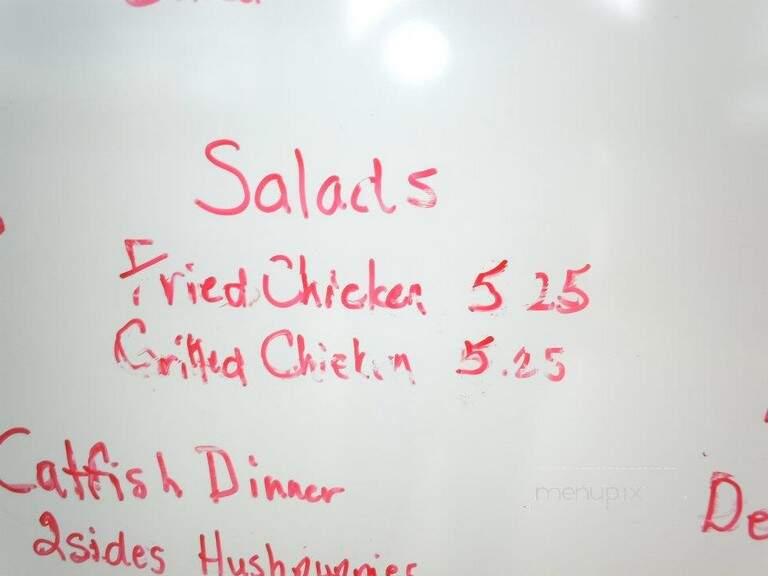 Salads
Fried Chicken 5 25
Grilled Chicken 5.25
Catfish Dinner
menupix
De
2sides Hushpuppies